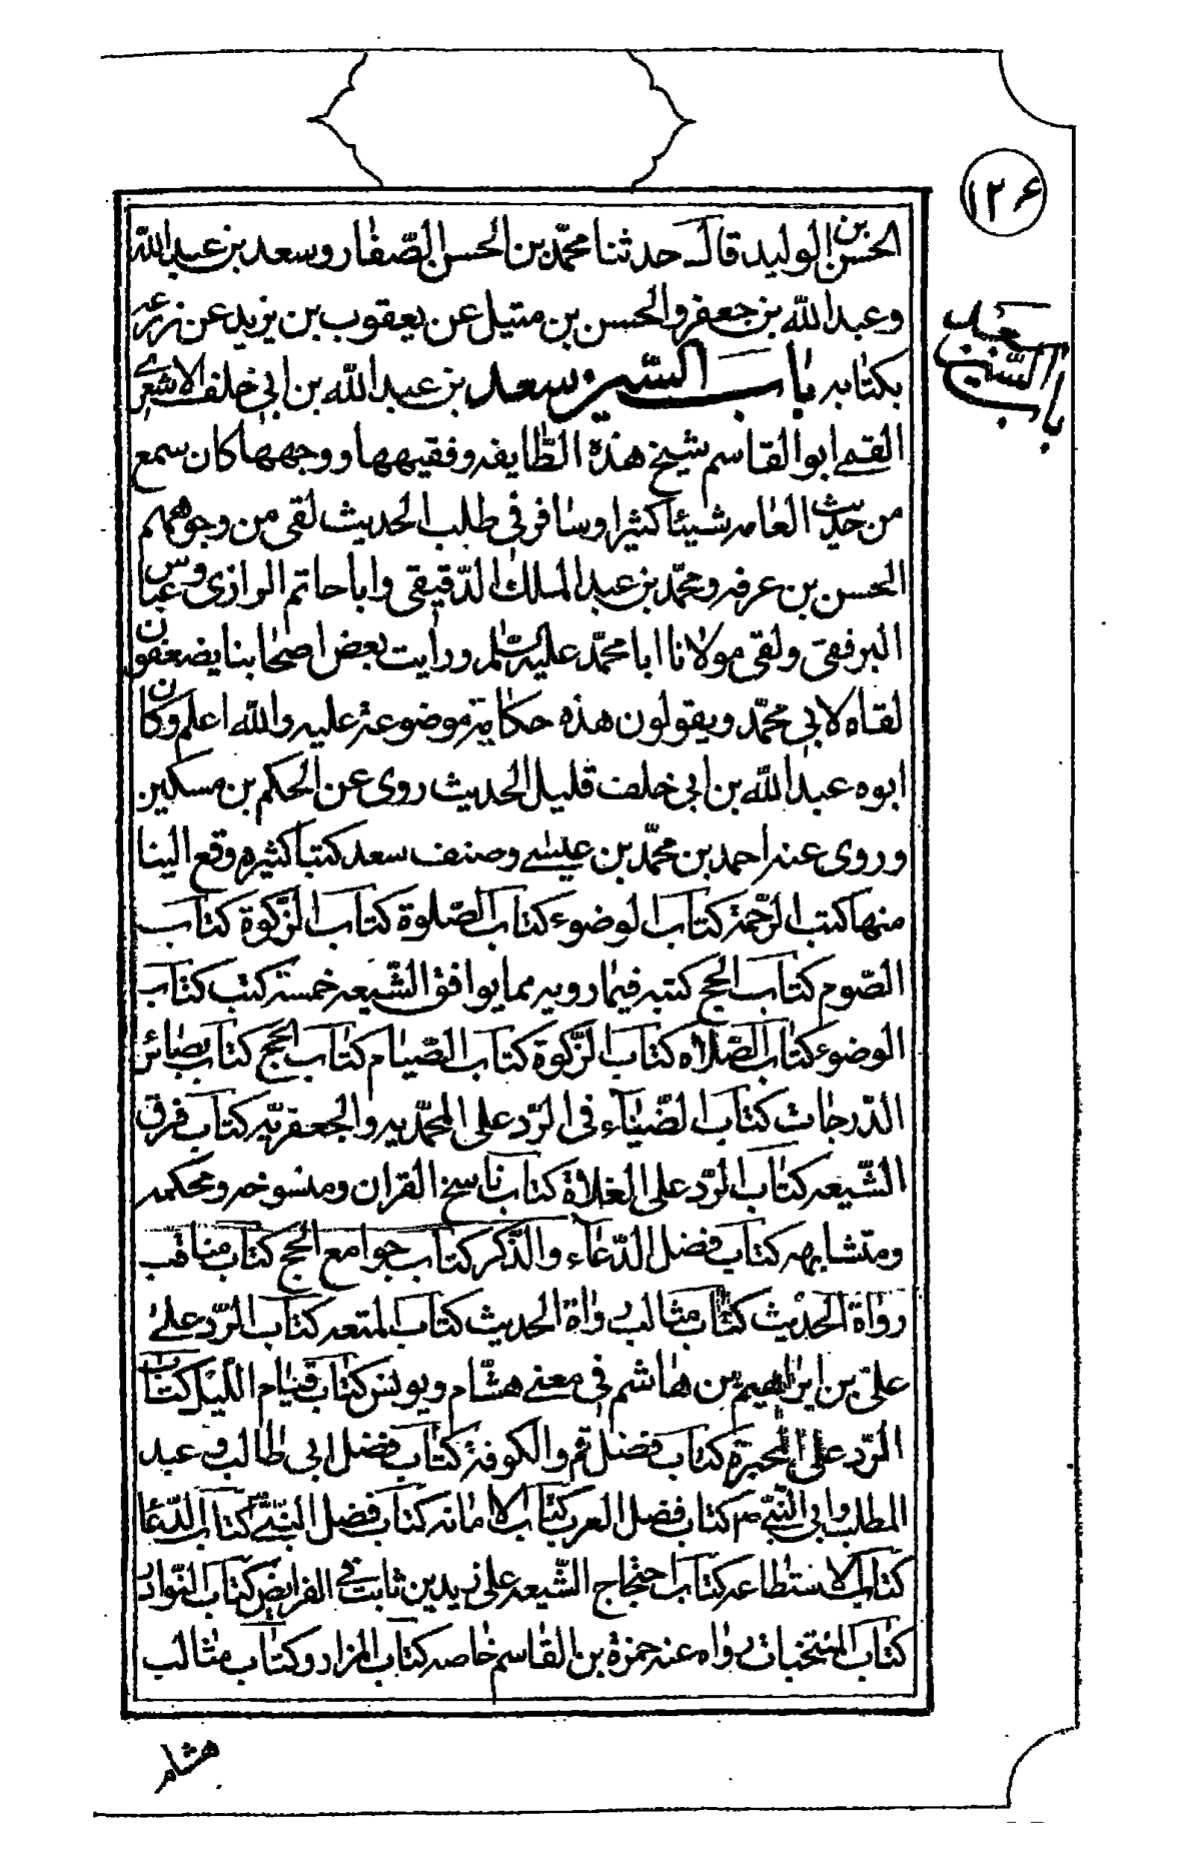 ١٢۶
باب السين
سعيد
الحسن بن الوليد قال حدثنا محمّد بن الحسن الصّفار وسعد بن عبد الله
وعبد الله بن جعفر والحسن بن متيل عن يعقوب بن يزيد عن زرعه
بكتابه باب السّين سعد بن عبد الله بن ابي خلف الاشعري
القمي ابو القاسم شيخ هذه الطّايفه وفقيهها ووجهها كان سمع
من حديث العامه شيئا كثيرا وسافر في طلب الحديث لقى من وجوههم
الحسن بن عرفه ومحمّد بن عبد الملك الدّقيقي وابا حاتم الرازى وعباس
البرفقى ولقى مولانا ابا محمّد عليه السّلم ورايت بعض اصحابنا يضعفون
لقاه لابي محمّد ويقولون هذه حكاية موضوعة عليه والله اعلم وكان
ابوه عبد الله بن ابي خلف قليل الحديث روى عن الحكم بن مسكين
وروى عنه احمد بن محمّد بن عيسى وصنف سعد كتبا كثيره وقع الينا
منها كتب الرّحمة كتاب الوضوء كتاب الصّلوة كتاب الزّكوة كتاب
الصّوم كتاب الحج كتبه فيما رويه مما يوافق الشّيعه خمسة كتب كتاب
الوضوء كتاب الصّلاه كتاب الزّكوة كتاب الصّيام كتاب الحج كتاب بصائر
الدّرجات كتاب الضّياء في الرّد على المحمّديه والجعفريّه كتاب فرق
الشّيعه كتاب الرّد على الغلاة كتاب ناسخ القران ومنسوخه ومحكمه
ومتشابهه كتاب فضل الدّعآء والذّكر كتاب جوامع الحج كتاب مناقب
رواة الحديث كتاب مثالب رواة الحديث كتاب المتعه كتاب الرّد على
علىّ بن ابراهيم بن هاشم في معنى هشام ويونس كتاب قيام اللّيل كتاب
الرّد على المجبرة كتاب فضل قم والكوفة كتاب فضل ابي طالب وعبد
المطلب وابي النّبيّ ص كتاب فضل العرب كتاب الامامه كتاب فضل النّبيّ كتاب الدّعا
كتاب الاستطاعه كتاب احتجاج الشّيعه على زيد بن ثابت في الفرايض كتاب النّوادر
كتاب المنتخبات رواه عنه حمزة بن القاسم خاصه كتاب المزار وكتاب مثالب
هشام